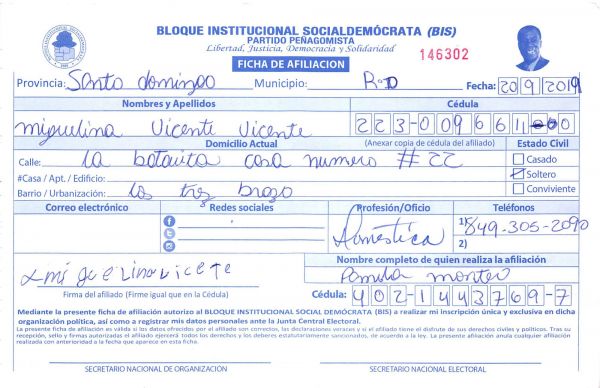 BLOQUE INSTITUCIONAL SOCIALDEMÓCRATA (BIS)
PARTIDO PEÑAGOMISTA
Libertad, Justicia, Democracia y Solidaridad
146302
FICHA DE AFILIACION
Provincia: Santo domingo Municipio: R.D Fecha: 20 9 2019
Nombres y Apellidos Cédula
miguelina Vicente Vicente 223-0096611-
Domicilio Actual (Anexar copia de cédula del afiliado) Estado Civil
Calle: la botanita casa numero # 22 Casado
#Casa / Apt. / Edificio: Soltero
Barrio / Urbanización: los tres brazo Conviviente
Correo electrónico Redes sociales Profesión/Oficio Teléfonos
Domestica 1) 849-305-2090
2)
Nombre completo de quien realiza la afiliación
x miguelina vicete Pamela montero
Firma del afiliado (Firme igual que en la Cédula) Cédula: 402-1443769-7
Mediante la presente ficha de afiliación autorizo al BLOQUE INSTITUCIONAL SOCIAL DEMOCRATA (BIS) a realizar mi inscripción única y exclusiva en dicha
organización política, así como a registrar mis datos personales ante la Junta Central Electoral.
La presente ficha de afiliación es válida si los datos ofrecidos por el afiliado son correctos, las declaraciones veraces y si el afiliado tiene el disfrute de sus derechos civiles y políticos. Tras su
recepción, sello y firmas autorizadas el afiliado ejercerá todos los derechos y los deberes estatutariamente sancionados, de acuerdo a la ley. La presente afiliación anula cualquier afiliación
realizada con anterioridad a la fecha que aparece en esta ficha.
SECRETARIO NACIONAL DE ORGANIZACIÓN SECRETARIO NACIONAL ELECTORAL